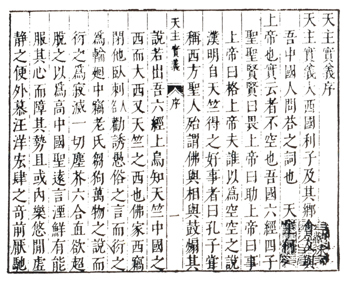 天主實義序
天主實義大西國利子及其鄉會友與
吾中國人問荅之詞也 天主何
上帝也實云者不空也吾國六經四子
聖聖賢賢曰畏上帝曰助上帝曰事
上帝曰格上帝夫誰以爲空空之說
漢明自天竺得之好事者曰孔子嘗
稱西方聖人殆謂佛與相與鼓煽其
天主實義 序 一
說若出吾六經上烏知天竺中國之
西而大西又天竺之西也佛家西竊
閉他臥剌勸誘愚俗之言而衍之
爲輪廻中竊老氏芻狗萬物之說而
衍之爲寂滅一切塵芥六合直欲超
脫之以爲高中國聖遠言湮鮮有能
服其心而障其勢且或內樂悠閒虛
靜之便外慕汪洋宏肆之奇前厭馳